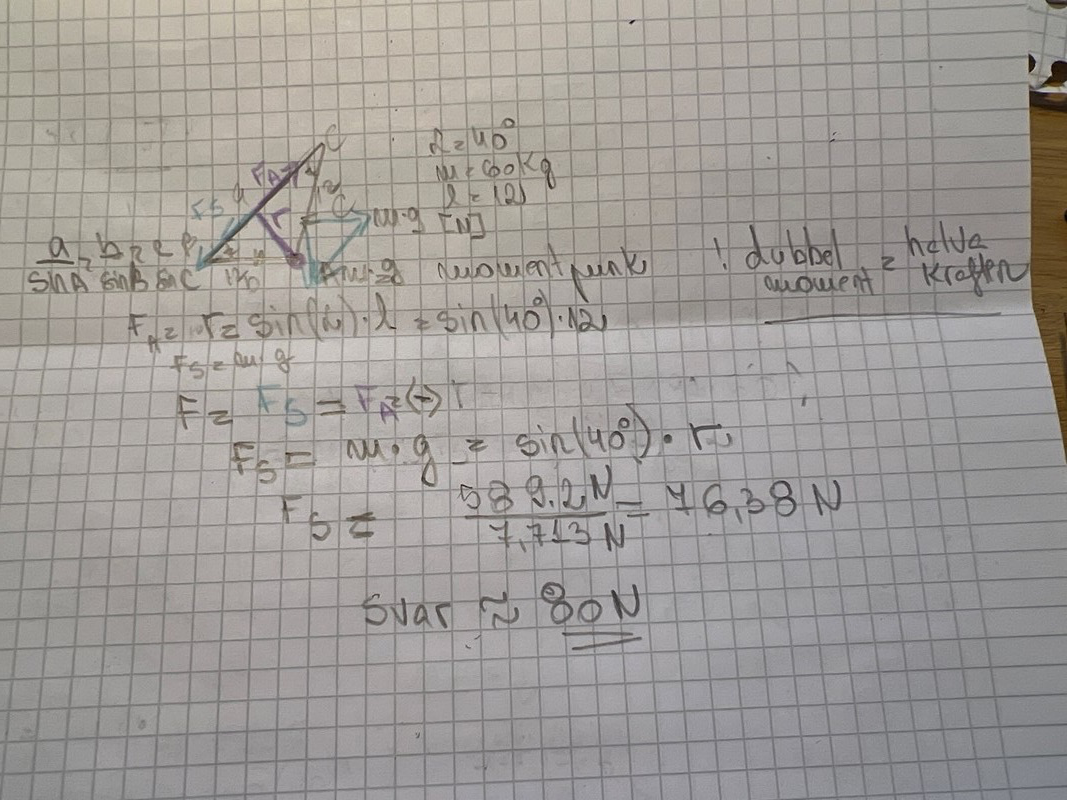 α = 40°
m = 60 kg
l = 12
m·g [N]
a/sinA = b/sinB = c/sinC
m·g moment punk
! dubbel moment = halva kraften
F_A = r = sin(α)·l = sin(40°)·12
F_S = m·g
F = F_S = F_A = (→) r
F_S = m·g = sin(40°)·r
F_S = 589.2N/7,713N = 76,38 N
Svar ≈ 80N